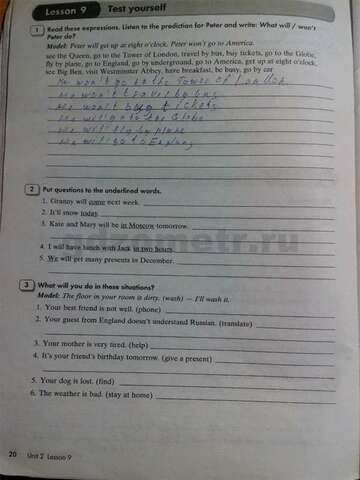 Lesson 9 Test yourself
1 Read these expressions. Listen to the prediction for Peter and write: What will / won't
Peter do?
Model: Peter will get up at eight o'clock. Peter won't go to America.
see the Queen, go to the Tower of London, travel by bus, buy tickets, go to the Globe,
fly by plane, go to England, go by underground, go to America, get up at eight o'clock,
see Big Ben, visit Westminster Abbey, have breakfast, be busy, go by car
He won't go to the Tower of London
He won't travel by bus
He won't buy tickets
He will go to the Globe
He will fly by plane
He will go to England
2 Put questions to the underlined words.
1. Granny will come next week.
2. It'll snow today.
3. Kate and Mary will be in Moscow tomorrow.
4. I will have lunch with Jack in two hours.
5. We will get many presents in December.
3 What will you do in these situations?
Model: The floor in your room is dirty. (wash) — I'll wash it.
1. Your best friend is not well. (phone)
2. Your guest from England doesn't understand Russian. (translate)
3. Your mother is very tired. (help)
4. It's your friend's birthday tomorrow. (give a present)
5. Your dog is lost. (find)
6. The weather is bad. (stay at home)
20 Unit 2 Lesson 9